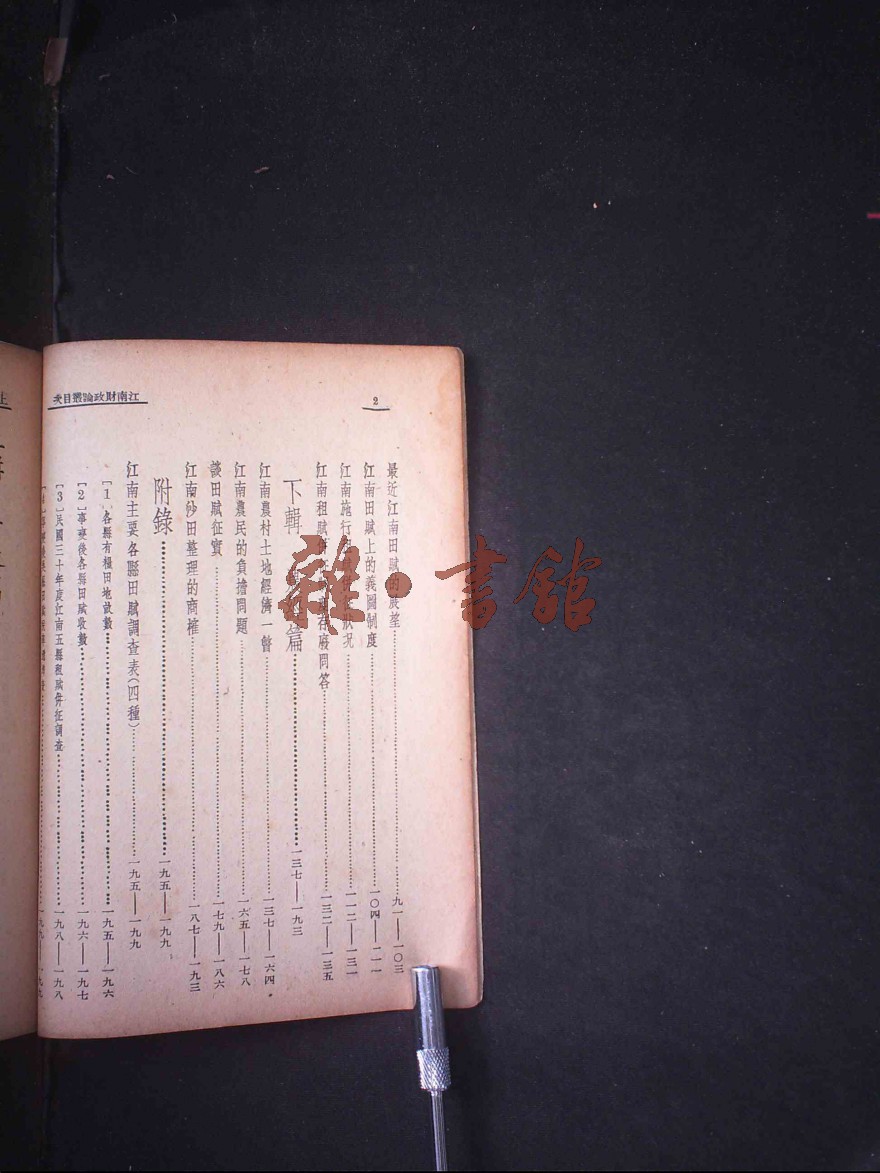 江南財政論叢目次
2
最近江南田賦的展望 九一——一〇三
江南田賦上的義圖制度 一〇四——一一一
江南施行 狀況 一一二——一三一
江南租賦併 存廢問答 一三二——一三五
下輯 篇 一三七——一九三
江南農村土地經濟一瞥 一三七——一六四
江南農民的負擔問題 一六五——一七八
談田賦征實 一七九——一八六
江南沙田整理的商榷 一八七——一九三
附錄 一九五——一九九
江南主要各縣田賦調查表(四種) 一九五——一九九
[1]各縣有糧田地畝數 一九五——一九六
[2]事變後各縣田賦收數 一九六——一九七
[3]民國三十年度江南五縣租賦併征調查 一九八——一九八
雜·書館